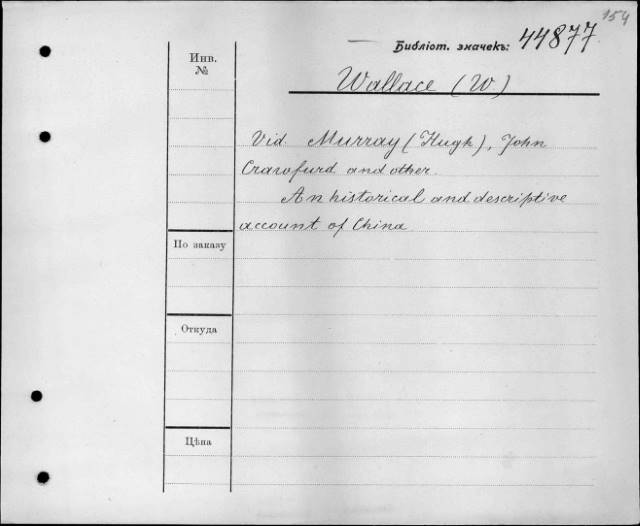 154
Библіот. значекъ: 44877.
Инв.
№
Wallace (W)
Vid. Murray (Hugh), John
Crawfurd and other.
An historical and descriptive
account of China
По заказу
Откуда
Цѣна